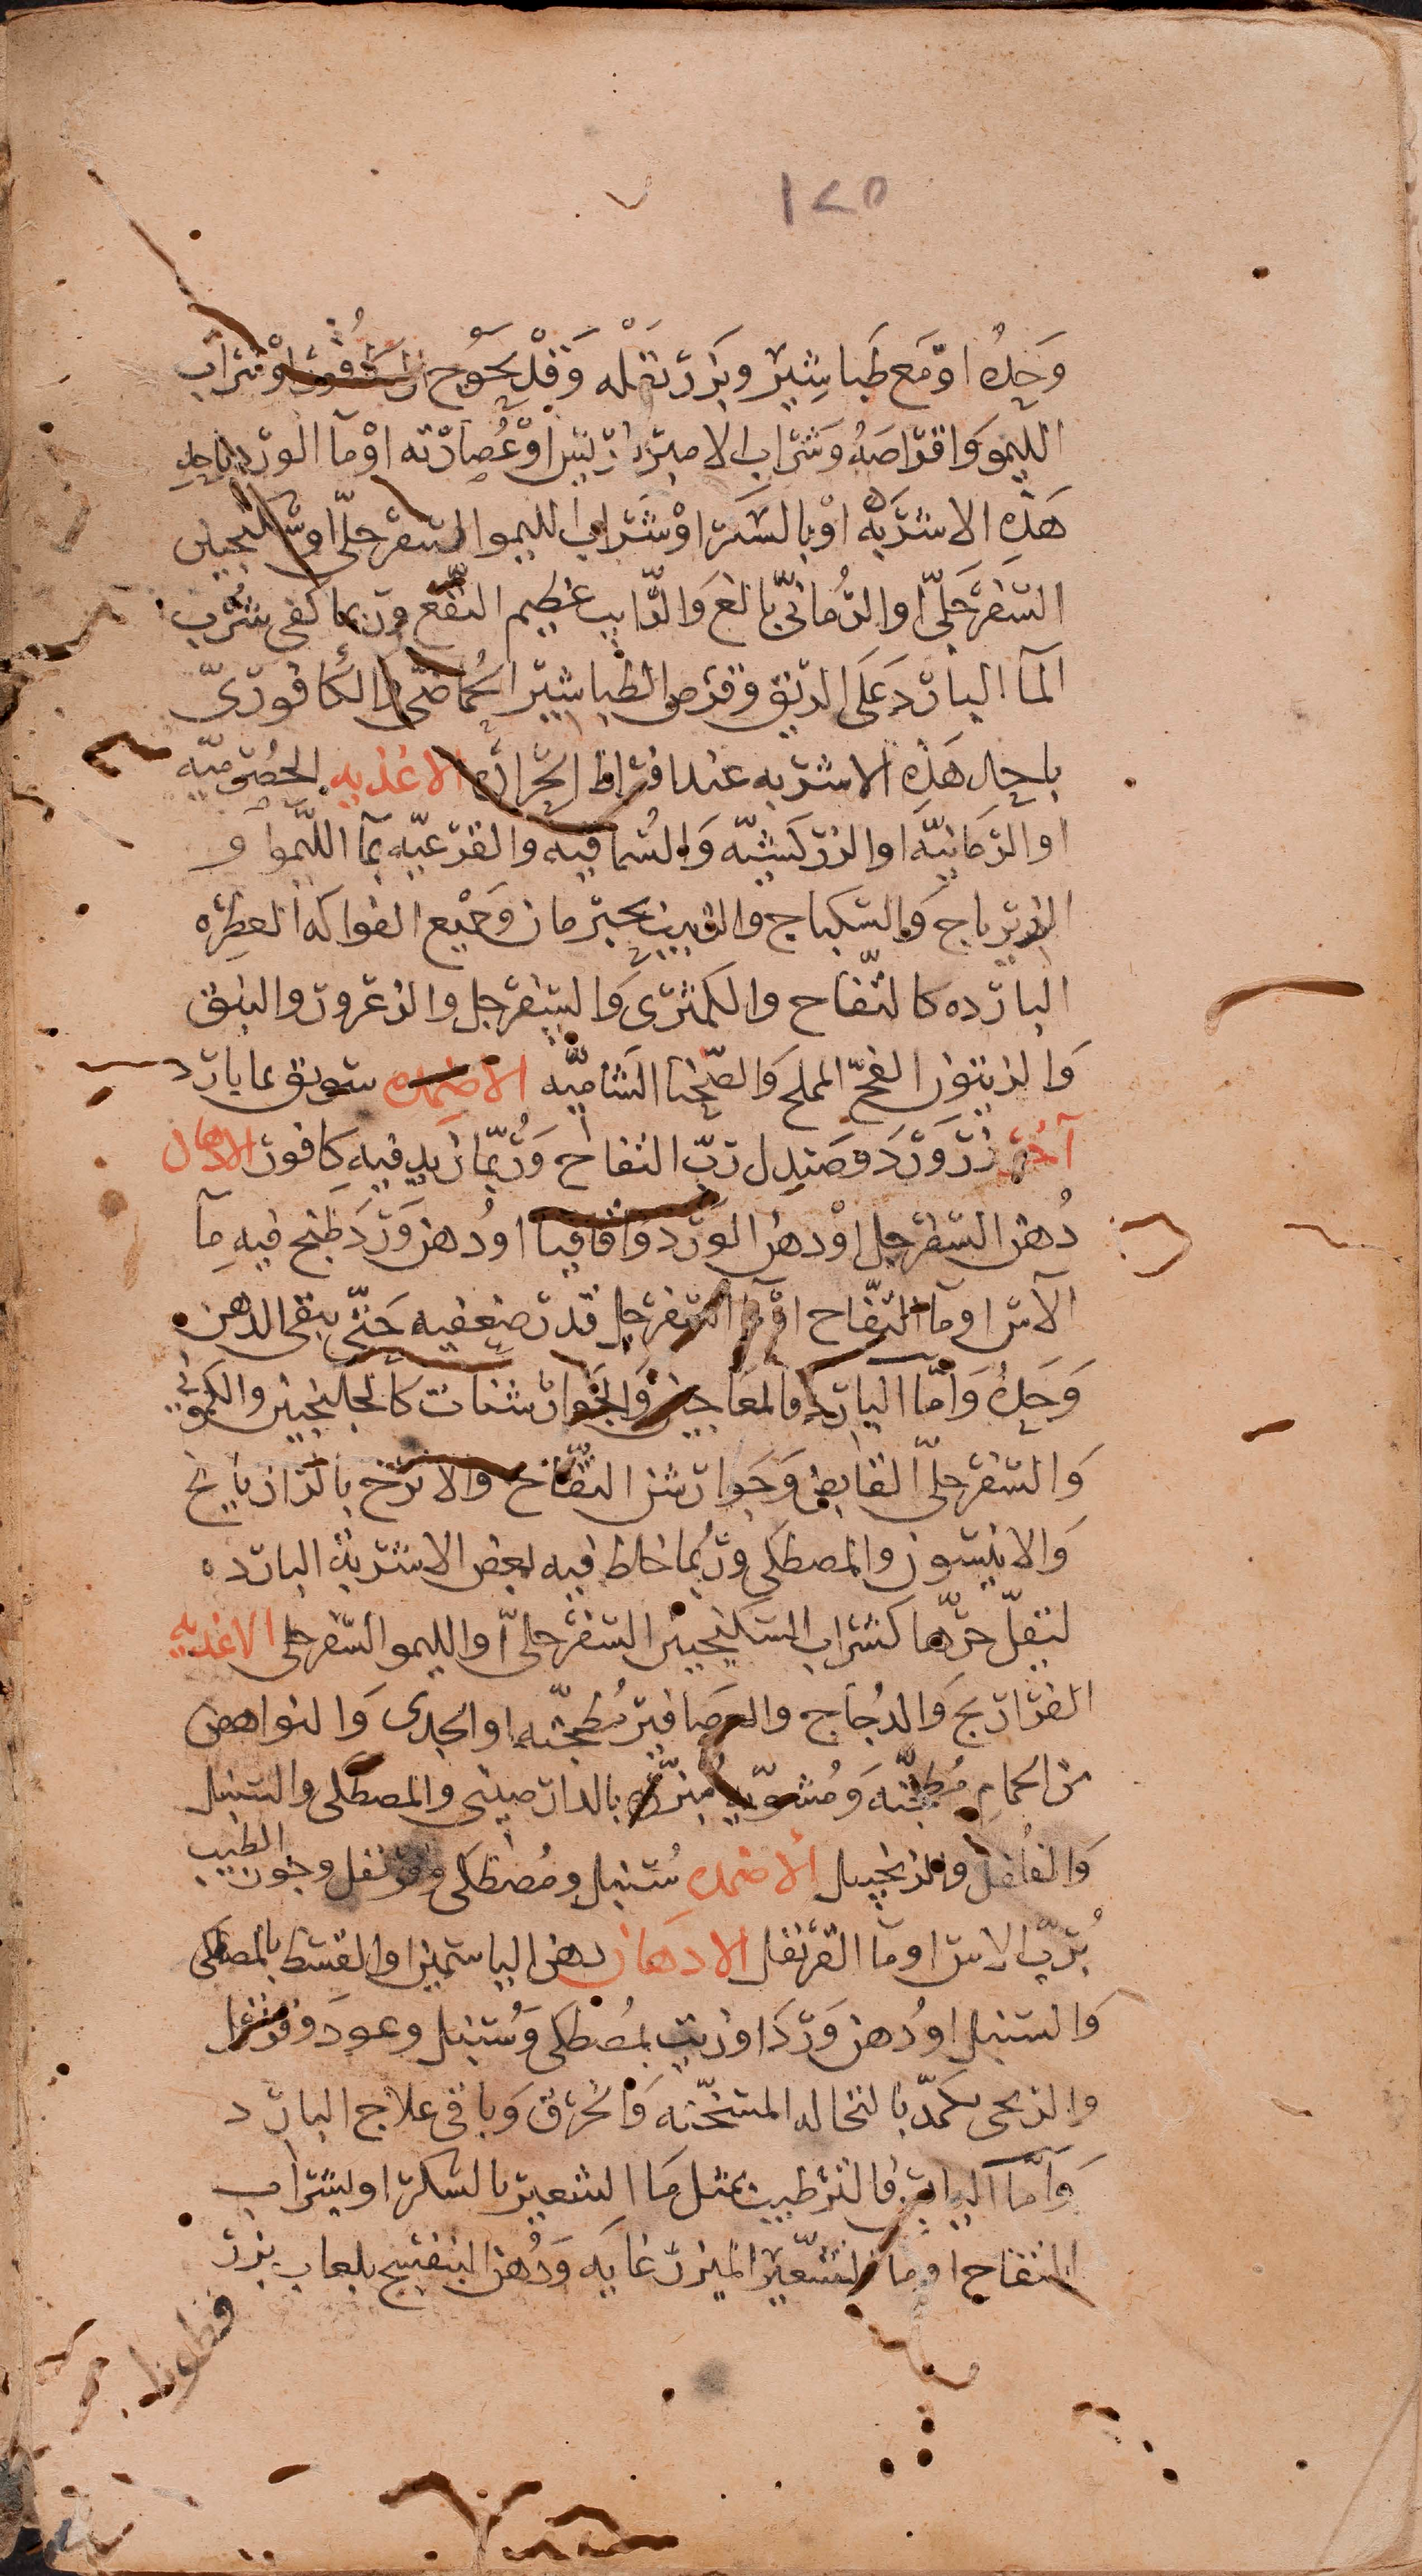 ١٢٥
وَحدهُ اوْ مَع طَباشِير وبَزر بَقله وَقدْ يحَوج اوْ شراب
الليمو وَاقراصهُ وَشراب الامبرباريس اوْ عُصارته اوْ مآ الورد باحد
هَذِه الاشربَه اوْ بالسكر اوْ شرَاب الليمو السفرجلّى او سكنجبين
السّفرجلّى او الرُمانىّ بالغ وَالرّايب عظيم النفع وربما كفى شرب
المآ البارد عَلَى الريق وقرص الطباشير الحُماضّى او الكافورىّ
باحد هَذِه الاشربه عند افراط الحراره الاغذيه الحصرميّه
او الرمانيّه او الزركشيّه وَالسُماقيه والقرعيّه بمآ الليمو او
الزيرباج وَالسكباج والزبيب بحبّ رمان وَجميع الفواكه العطره
البارده كالتفّاح والكمثرى وَالسفرجل والزعرور والنبق
وَالزيتون الفجّ المملح وَالصّحنا الشاميّه الاضمده سَويق بما بارد
آخر زر وَرد وَصَندل بربّ التفاح وَرُبّما زيد فيه كافور الادهان
دُهن السّفرجل اوْ دهن الوَرد وَاقاقيا اودُهن وَرد طبخ فيه مآ
الآس او مآ التفّاح اوْ مآ السّفرجل قدر ضعفيه حَتّى يبقى الدهن
وَحدهُ وَامّا البارد فالمعَاجين وَالجوارشنات كالجلنجبين والكمونى
وَالسّفرجلّى القابض وَجوارشن التفّاح والاترج بالرازيانج
وَالانيسون والمصطكى وربُما خلط فيه بعض الاشربة البارده
لتقلّ حرّها كشراب السكنجبين السفرجلىّ او الليمو السّفرجلى الاغذيه
الفراريج وَالدجاج والعصَافير مُطجّنه او الجدى وَالنواهض
من الحمام مُطجّنه وَمشويّه مُبزّره بالدارصينى والمصطكى والسنبل
وَالفلفل والزنجبيل الاضمده سُنبل ومُصطكى وقرنفل وجوز الطيب
بُربّ الاس او مآ القرنفل الادهان دهن الياسمين او القسط بالمصطكى
وَالسنبل اودُهن وَرد او زيت بمُصطكى وَسُنبل وعود وقرنفل
والريحى يكمّد بالنخاله المسَخّنه وَالخرق وَباقى علاج البارد
وَامّا اليابس فالترطيب بمثل مَا الشعير بالسكر او بشراب
التفاح او مآ الشّعير المبزر غايَه وَدُهن البنفسج بلعاب بزر
قطونا